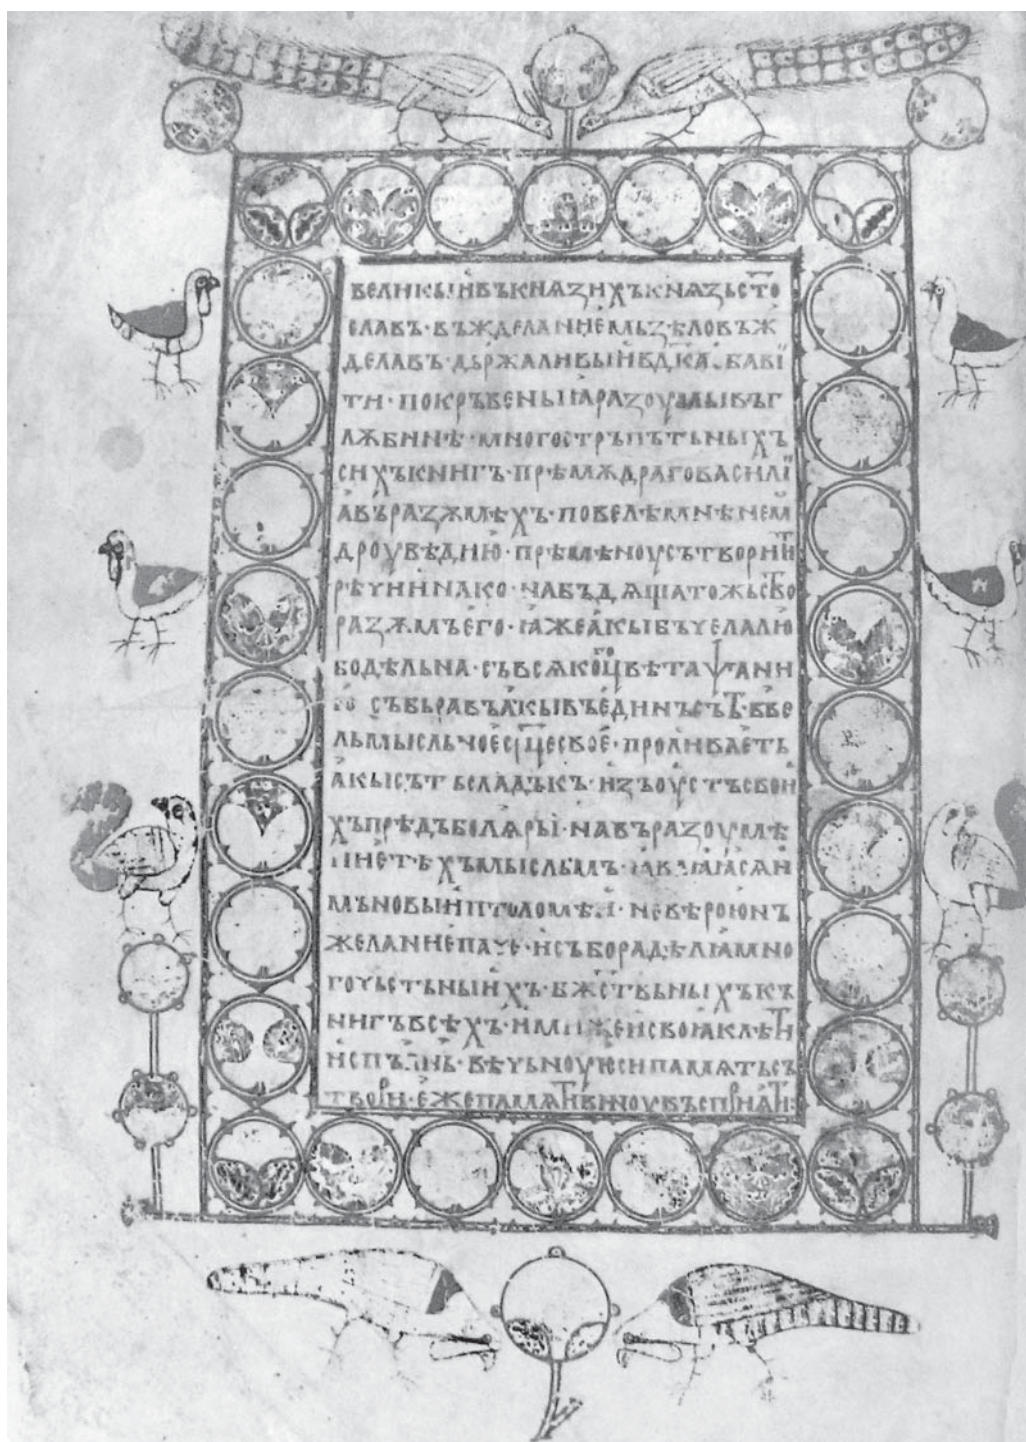 великыи въ кнѧзихъ кнѧзь ст҃о
славъ· въжделаниемь ѕѣло въж
делавъ· дьржаливыи влⷣка· ѡбави
ти· покръвеныꙗ разоумы въ г
лѫбинѣ· многостръпътьныхъ
сихъ книгъ· прѣмѫдраго василиꙗ
въ разѫмѣхъ· повелѣ мнѣ нем
дроувѣдию· прѣмѣноу сътворити
рѣчи инако· набъдѧща тожьство
разѫмъ его· ꙗже акы бъчела лю
бодѣльна· съ всѧкого цвѣта псани
ю събьравъ акы въ единъ сътъ· въ ве
льмысльное срⷣце свое· проливаеть
акы сътъ сладъкъ· изъ оустъ свои
хъ прѣдъ болѧры· на въразоумѣ
ние тѣхъ мысльмъ· ꙗвлꙗꙗсѧ и
мъ новыи птоломѣи· не вѣрою нъ
желаниемь паче· и събора дѣлꙗ мно
гочьстьныихъ· бжⷭтвьныхъ къ
нигъ всѣхъ· имиже и своꙗ клѣти
испълнь· вѣчьноую си памѧть съ
твори· еже памѧти виноу въсприꙗти: